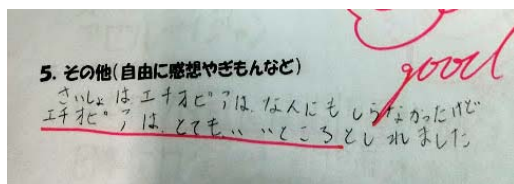 5. その他(自由に感想やぎもんなど)
good
さいしょはエチオピアは、なんにもしらなかったけど
エチオピアは、とても、いいところとしれました